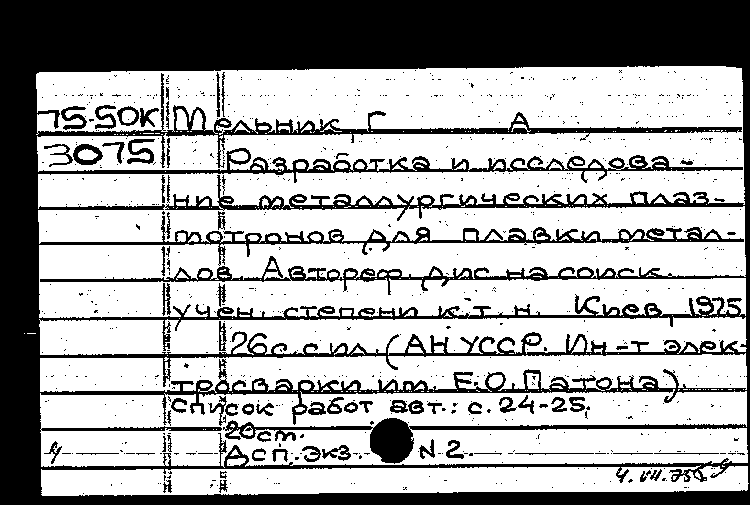 75-50К Мельник, Г А
3075 Разработка и исследова-
ние металлургических плаз-
мотронов для плавки метал-
лов. Автореф. дис на соиск.
учен. степени к.т.н. Киев, 1975.
26с. с ил. (АН УССР. Ин-т элек-
тросварки им. Е.О. Патона).
Список работ авт.: с. 24-25.
20см.
Дсп. экз. N 2.